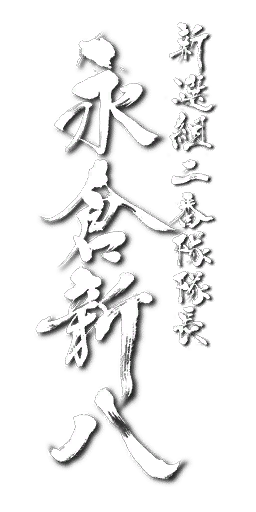 新選組二番隊隊長
永倉新八